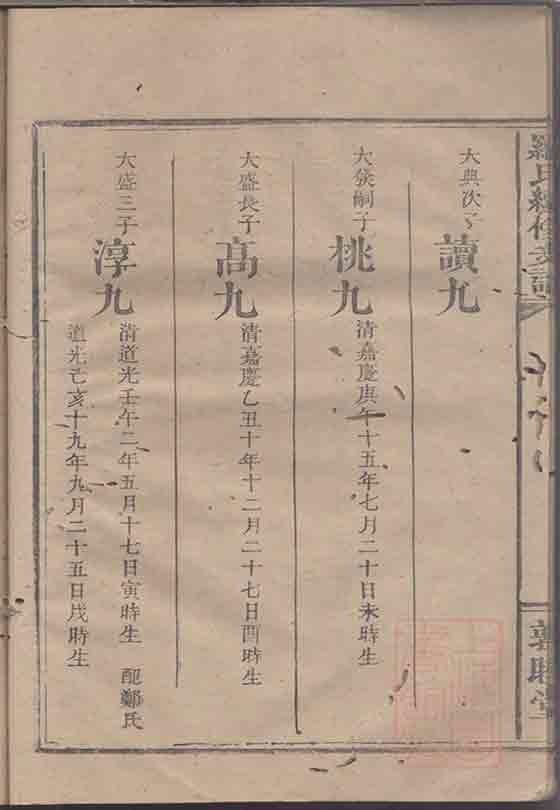 大典次子
讀九
大癸嗣子
桃九
清嘉慶庚午十五年七月二十日未時生
大盛長子
高九
清嘉慶乙丑十年十二月二十七日酉時生
大盛三子
淳九
清道光壬午二年五月十七日寅時生 配鄭氏
道光己亥十九年九月二十五日戌時生